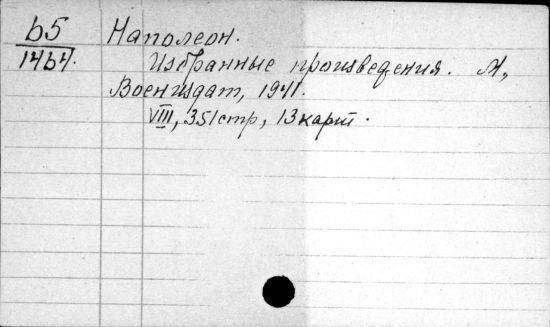 b5
1464.
Наполеон.
Избранные произведения. М.,
Воениздат, 1941.
VIII, 351 стр, 13 карт.